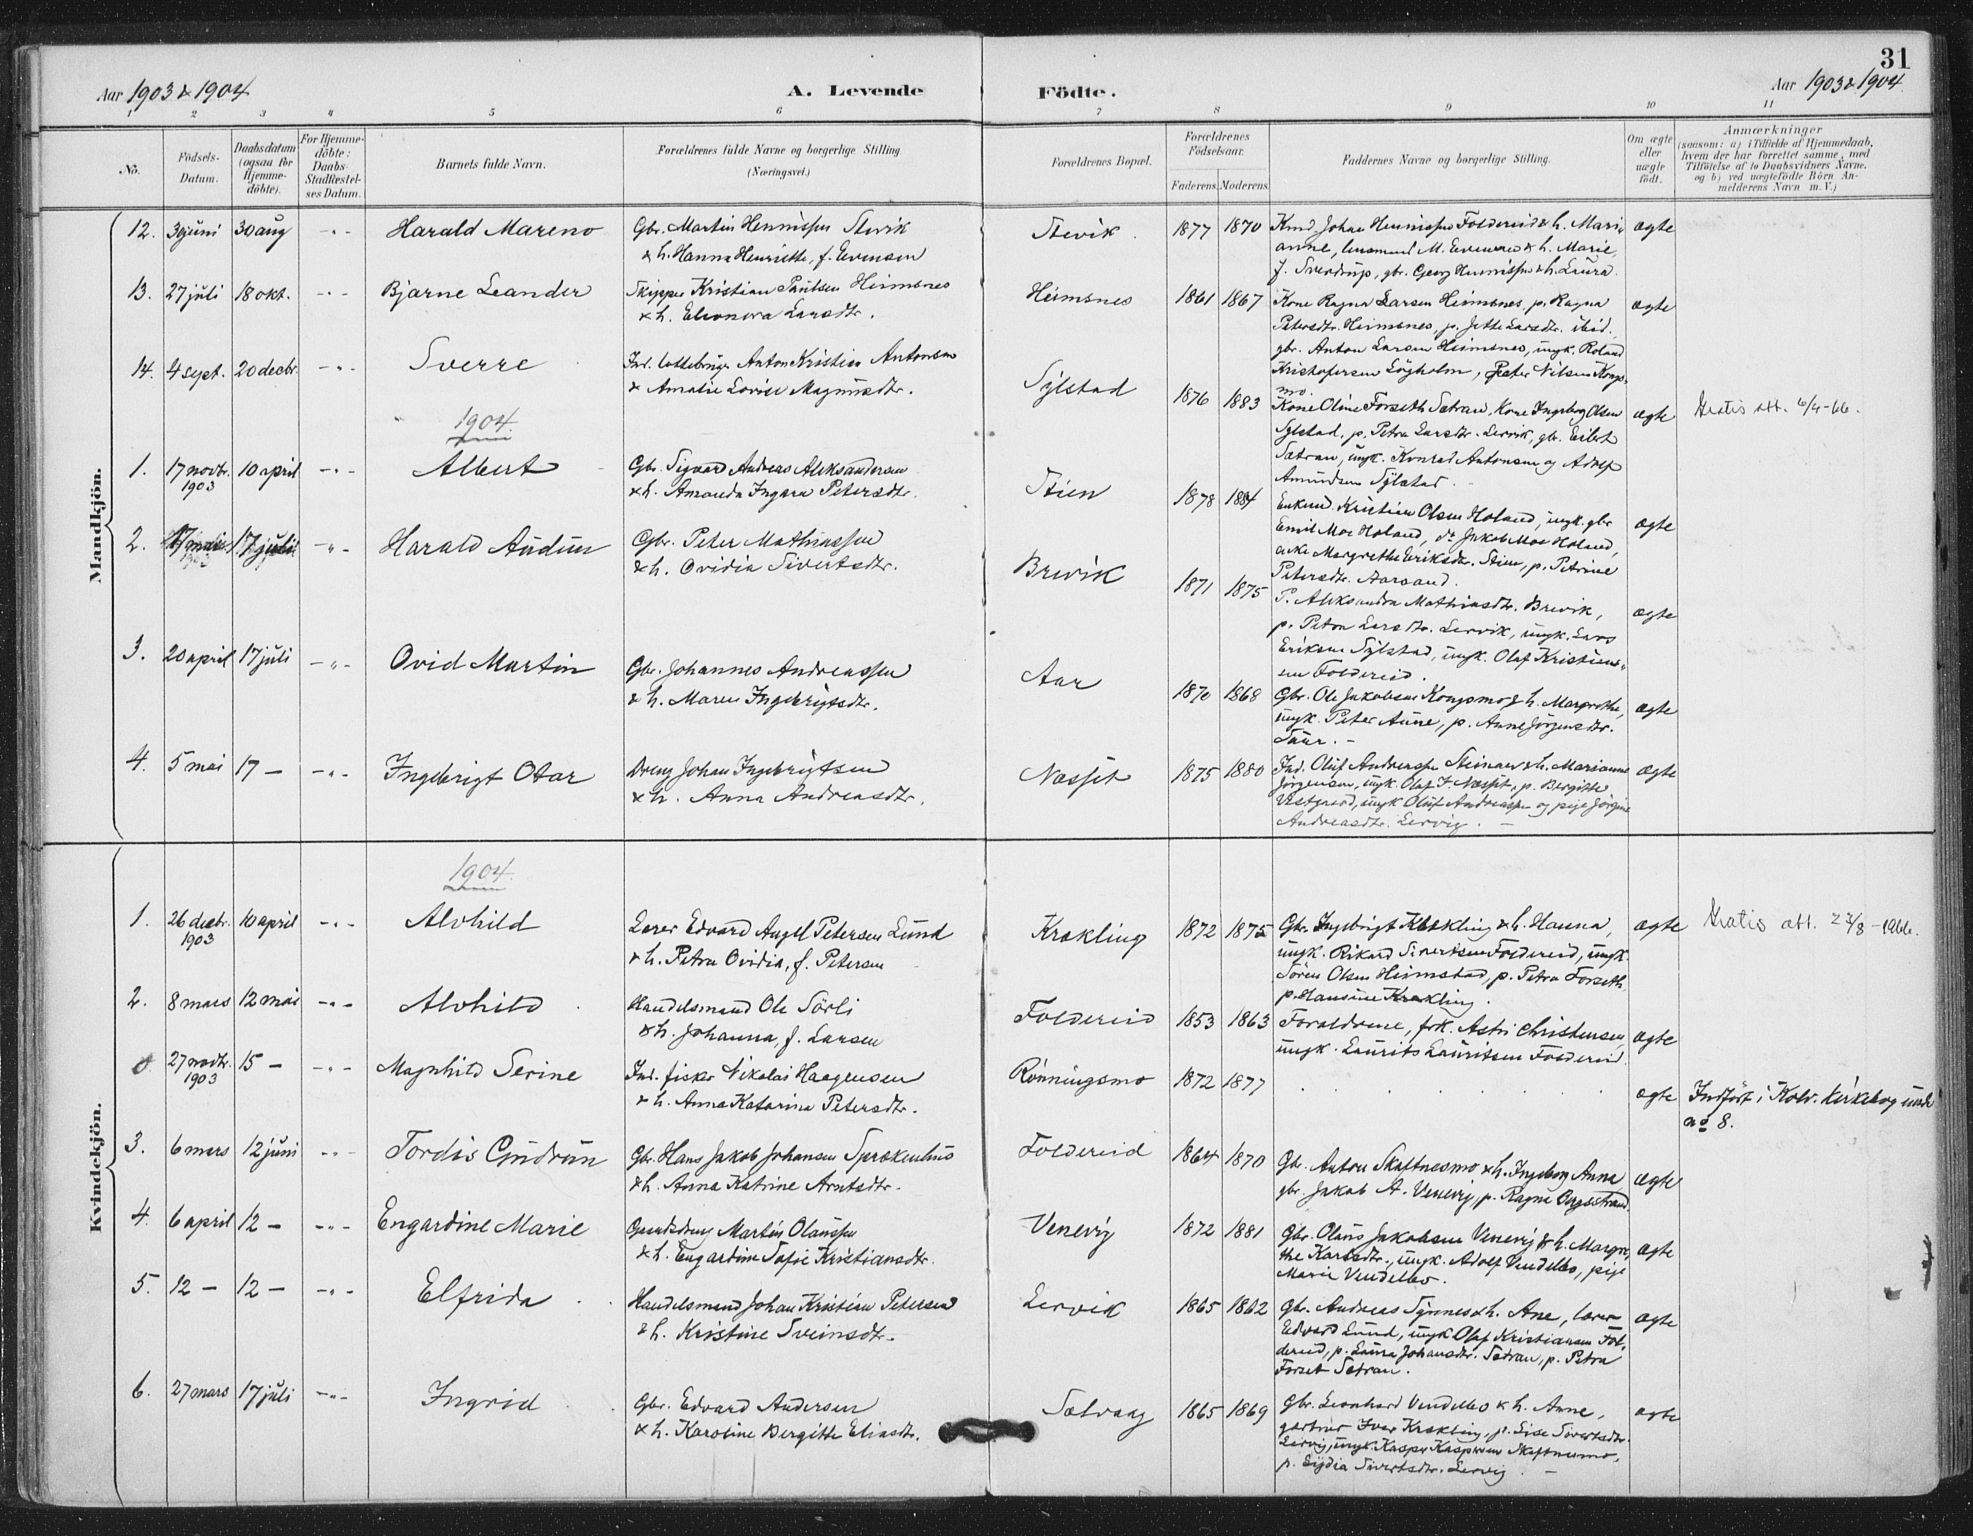 31
Aar 1903 & 1904
A. Levende Födte.
Aar 1903 & 1904
1 2 3 4 5 6 7 8 9 10 11
No.
Födsels-Datum.
Daabsdatum (ogsaa for Hjemmedöbte).
For Hjemmedöbte: Daabs-Stadfæstelses Datum.
Barnets fulde Navn.
Forældrenes fulde Navne og borgerlige Stilling (Næringsvei.)
Forældrenes Bopæl.
Forældrenes Födselsaar.
Faderens. Moderens.
Faddernes Navne og borgerlige Stilling.
Om ægte eller uægte födt.
Anmærkninger
(saasom: a) i Tilfælde af Hjemmedaab, hvem der har forrettet samme, med Tilföielse af to Daabsvidners Navne, og b) ved uægtefödte Börn Anmelderens Navn m. V.)
Mandkjön.
12. 3 juni 30 aug -"- Harald Mareno
Gbr. Martin Hennissen Stervik
& h. Hanna Henriette, f. Evensen
1877 1870
Kmd. Johan Hennissen Foldereid & h. Mari
anne, lensmand M. Evensen & h. Marie,
f. Sverdrup, gbr. Georg Hennissen & h. Laura.
ægte
13. 27 juli 18 okt. -"- Bjarne Leander
Skipper Kristian Paulsen Heimsnes
& h. Eleonora Larsdtr.
Heimsnes 1861 1867
Kone Ragna Larsen Heimsnes, p. Ragna
Petersdtr. Heimsnes, p. Jette Larsdtr. ibid.
gbr. Anton Larsen Heimsnes, ungk. Roland
Kristofersen Løgholm, Peter Nilsen Kongs-
mo.
ægte
14. 4 sept. 20 decbr. -"- Sverre
Ind. Anton Kristian Antonsen
& Amalie Lovise Magnusdtr.
Sylstad 1876 1883
Kone Oline Forseth Sætran, Kone Ingeborg Olsen
Sylstad, p. Petra Larsdtr. Lervik, gbr. Eilert
Sætran, ungk. Konrad Antonsen og Adolf
Amundsen Sylstad.
ægte
Gratis att. 6/4-66.
1904
1. 17 novbr. 1903 10 april -"- Albert
Gbr. Sigvard Andreas Aleksandersen
& h. Amanda Ingara Petersdtr.
Stien 1878 1884
Enkemd. Kristian Olsen Holand, ungk. gbr
Emil Moe Holand, do Jakob Moe Holand,
enke Margrethe Eriksdtr. Stien, p. Petrine
Petersdtr. Aarsand.
ægte
2. 17 juli -"- Harald Audun
Gbr. Peter Mathiassen
& h. Ovidia Sivertsdtr.
Brevik 1871 1875
P. Aleksandra Mathiasdtr. Brevik,
p. Petra Larsdtr. Lervik, ungk. Lars
Eriksen Sylstad, ungk. Olaf Kristian-
sen Foldereid.
ægte
3. 20 april 17 juli -"- Ovid Martin
Gbr. Johannes Andreassen
& h. Maren Ingebrigtsdtr.
Aar 1870 1868
Gbr. Ole Jakobsen Kongsmo & h. Margrethe,
ungk. Peter Aune, p. Anne Jörgensdtr.
ægte
4. 5 mai 17 - -"- Ingebrigt Otar
Dreng Johan Ingebrigtsen
& h. Anna Andreasdtr.
Næsset 1875 1880
Ind. Oluf Andreassen Steinaer & h. Marianne
Jörgensen, ungk. Olaf J. Næsset, p. Bergitte
Vestgaard, ungk. Oluf Andreassen og pige Jörgine
Andreasdtr. Lervig.
ægte
Kvindekjön.
1904
1. 26 decbr. 1903 10 april -"- Alvhild
Lærer Edvard Angel Petersen Lund
& h. Petra Ovidia, f. Petersen
Krækling 1872 1875
Gbr. Ingebrigt Krækling & h. Hanna,
ungk. Rikard Sivertsen Foldereid, ungk.
Sören Olsen Heimstad, p. Petra Forseth
p. Hansine Krækling.
ægte
Gratis att. 23/8-1966.
2. 8 mars 12 mai -"- Alvhild
Handelsmand Ole Sörli
& h. Johanna, f. Larsen
Foldereid 1853 1863
Forældrene, frk. Astri Christensen,
ungk. Laurits Lauritsen Foldereid
ægte
0 27 novbr. 1903 15 - -"- Magnhild Serine
Ind. fisker Nikolai Haagensen
& h. Anna Katarina Petersdtr.
Rönningsmo 1872 1877
ægte
Indfört i Kolv. kirkebog under
no 8.
3. 6 mars 12 juni -"- Tordis Gudrun
Gbr. Hans Jakob Johansen Sprøkenhus
& h. Anna Katrine Arntsdtr.
Foldereid 1864 1870
Gbr. Anton Skaftnesmo & h. Ingeborg Anna,
gbr. Jakob A. Venevig, p. Ragna
ægte
4. 6 april 12 - -"- Engardine Marie
Gaardsdreng Martin Olaussen
& h. Engardine Sofie Kristiansdtr.
Venevig 1872 1881
Gbr. Olaus Jakobsen Venevig & h. Margre
the Karlsdtr., ungk. Adolf Vendelbo, pige
Marie Vendelbo.
ægte
5. 12 - 12 - -"- Elfrida
Handelsmand Johan Kristian Petersen
& h. Kristine Sveinsdtr.
Lervik 1865 1862
Gbr. Andreas Synnes & h. Ane, lærer
Edvard Lund, ungk. Olaf Kristiansen Fol-
dereid, p. Laura Johansdtr. Sætran, p. Petra
Forset Sætran.
ægte
6. 27 mars 17 juli -"- Ingrid
Gbr. Edvard Andersen
& h. Karoline Bergitte Eliasdtr.
Sætvaag 1865 1869
Gbr. Leonhard Vendelbo & h. Anne,
gartner Iver Krækling, p. Lise Sivertsdtr.
Lervig, ungk. Kasper Kaspersen Skaftnesmo,
p. Lydia Sivertsdtr. Lervig.
ægte